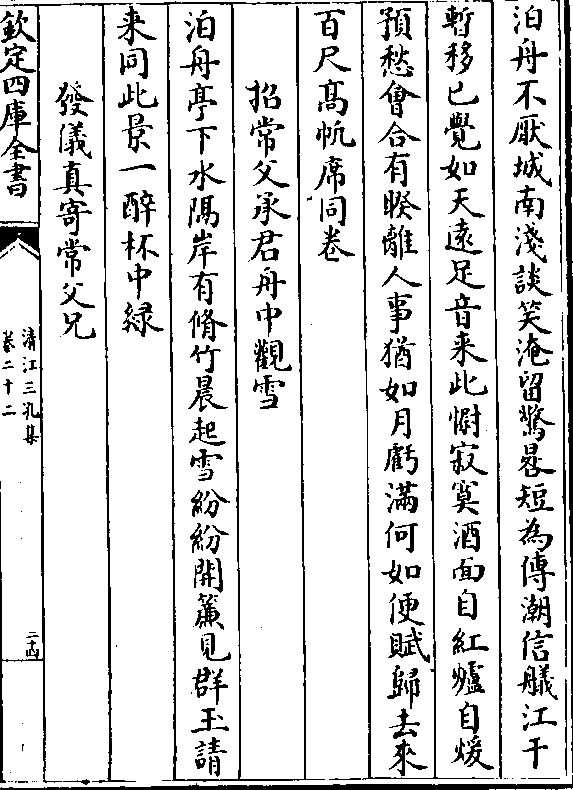 泊舟不厭城南淺談笑淹留驚晷短為傳潮信艤江干
暫移已覺如天遠足音来此慰寂寞酒面自紅爐自煖
預愁會合有暌離人事猶如月虧滿何如便賦歸去來
百尺高帆席同卷
招常父承君舟中觀雪
泊舟亭下水隔岸有脩竹晨起雪紛紛開簾見群玉請
来同此景一醉杯中緑
發儀真寄常父兄
欽定四庫全書
清江三孔集
卷二十二
二十四